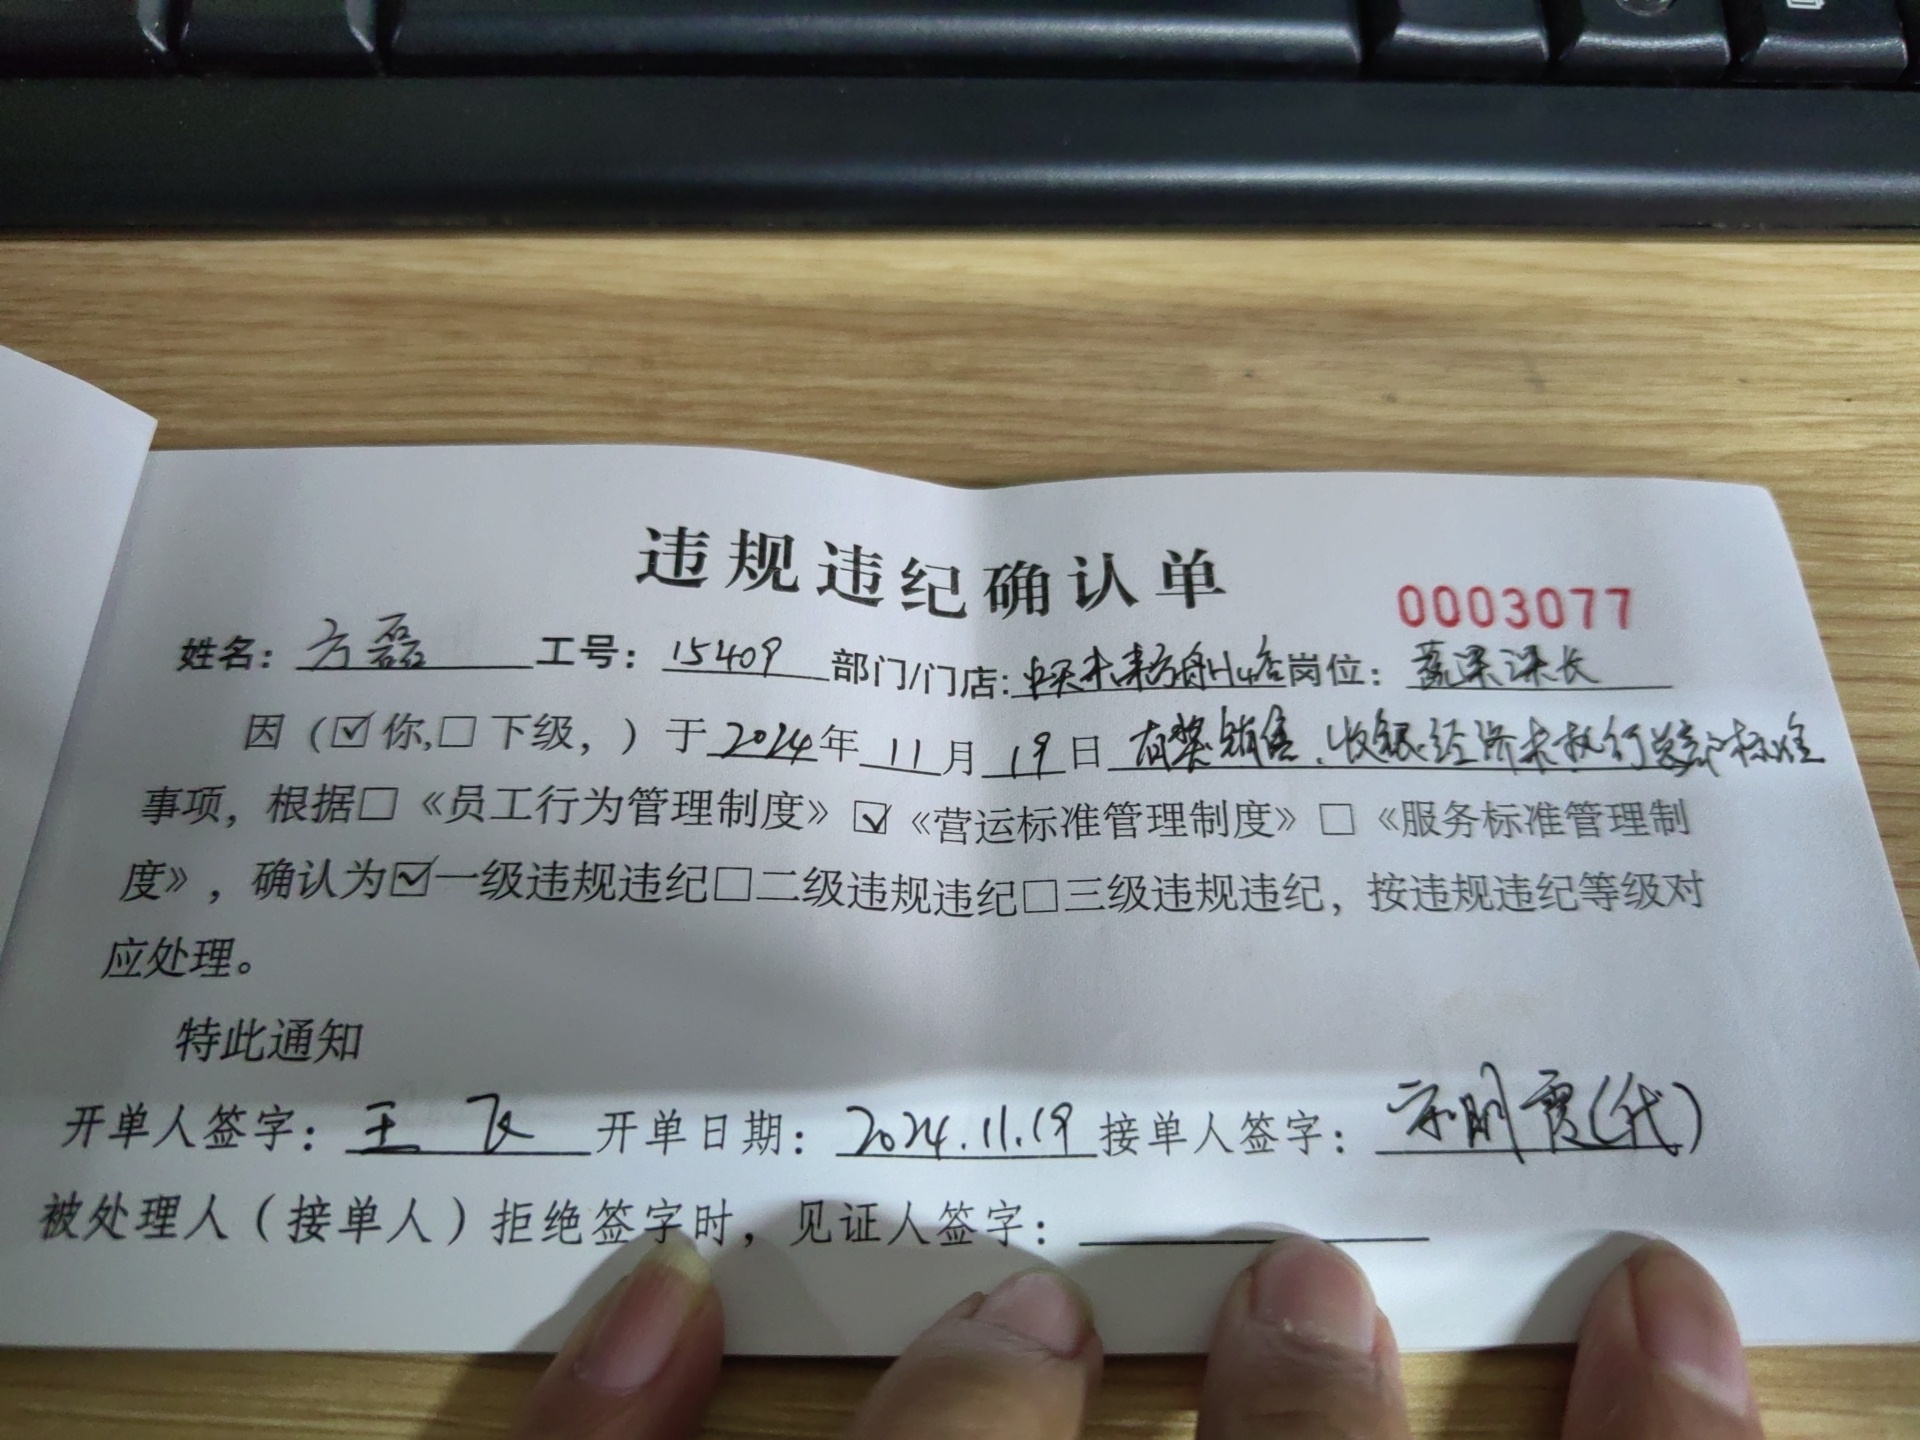 违规违纪确认单
0003077
姓名：方磊 工号：15409 部门/门店：中天未来方舟H4店 岗位：蔬果课长
因（☑你,☐下级，）于2024年11月19日 有奖销售、收银 未执行 标准
事项，根据☐《员工行为管理制度》☑《营运标准管理制度》☐《服务标准管理制
度》，确认为☑一级违规违纪☐二级违规违纪☐三级违规违纪，按违规违纪等级对
应处理。
特此通知
开单人签字：王飞 开单日期：2024.11.19 接单人签字：宋明霞（代）
被处理人（接单人）拒绝签字时，见证人签字：